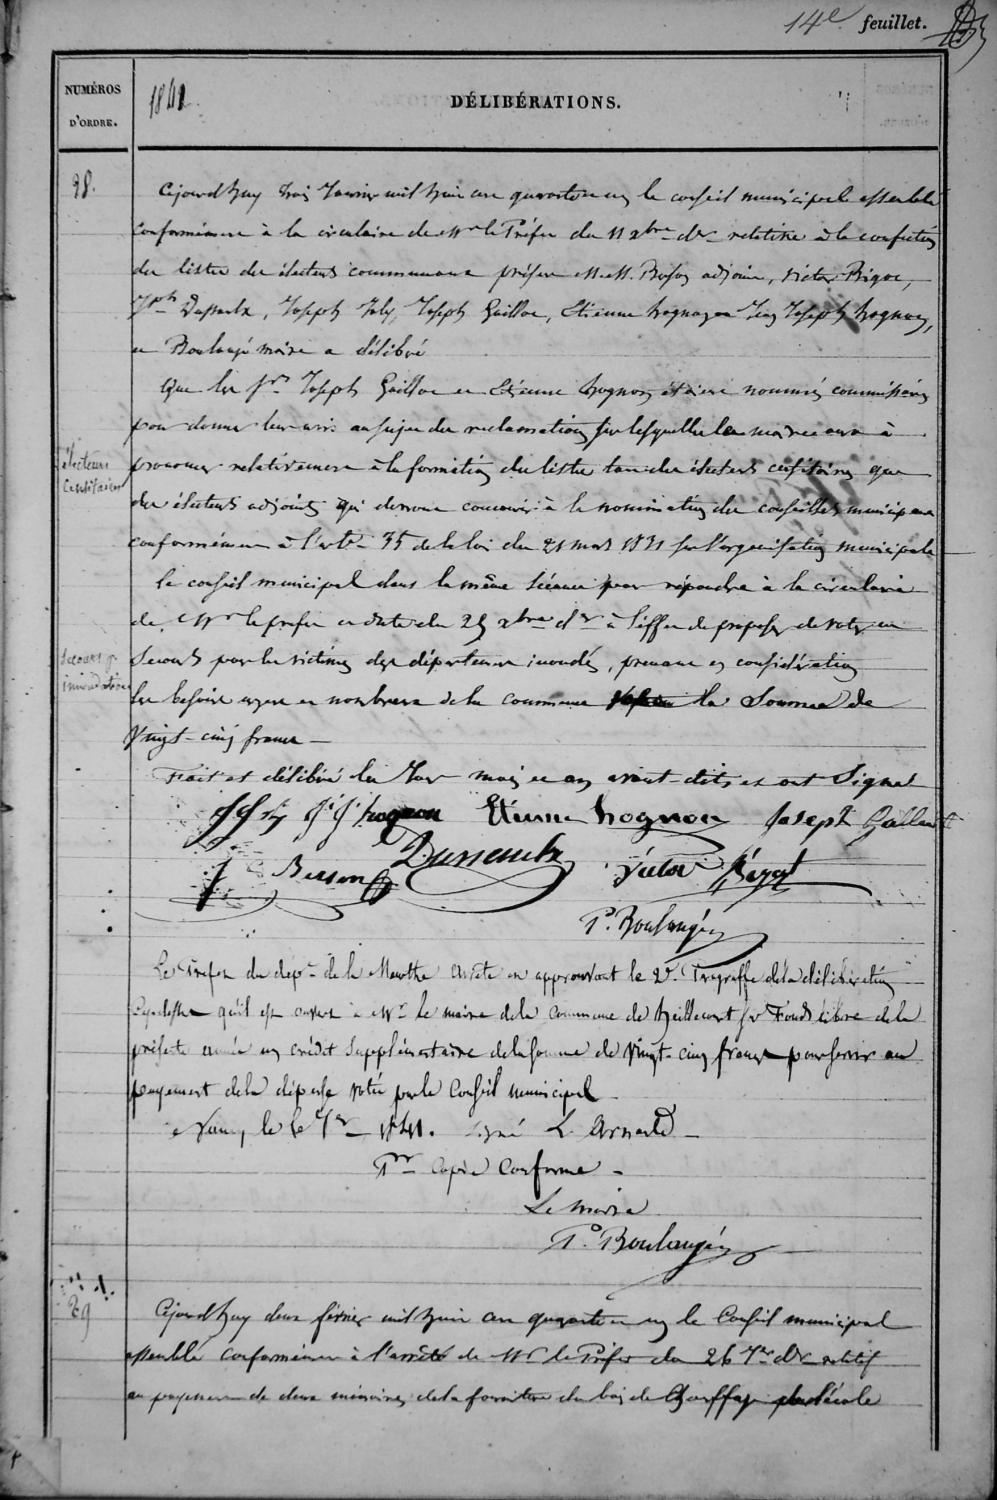 14e feuillet.
NUMÉROS
D'ORDRE.
1841
DÉLIBÉRATIONS.
28.
Cejourd'huy trois Janvier mil huit cent quarante un le conseil municipale assemblé
conformément à la circulaire de Mr le Préfet du 11 xbre dr relative à la confection
des listes des électeurs communaux présens M.M. adjoint, Victor Bigot,
Jph Dusseaulx, Joseph Joly, Joseph Gaillot, Etienne hognon Joseph hognon,
et Boulangé maire a délibéré
Que les Srs Joseph Gaillot et Etienne hognon étaient nommés commissaires
pour donner leur avis au sujet des réclamations sur lesquelles le maire aura à
électeurs
censitaires
prononcer relativement à la formation des listes tant des électeurs censitaires que
des électeurs adjoints qui devront concourir à la nomination des conseillers municipaux
conformément à l'arte 35 de la loi du 21 mars 1831 sur l'organisation municipale
le conseil municipal dans la même séance pour répondre à la circulaire
de Mr le préfet en date du 25 xbre dr à l'effet de proposer de voter un
Secours pr
inondations
secours pour les victimes des départemens inondés, prenant en considération
les besoins et nombreux de la commune la somme de
vingt-cinq francs
Fait et délibéré les Jour mois et an avant dits, et ont Signé
J J hognon Etienne hognon Joseph Gaillot
Dusseaulx Victor Bigot
P. Boulangé
Le Préfet du dept de la Meurthe arrête en approuvant le 2e Paragraffe de la délibération
Cy dessus qu'il est ouvert à Mr le maire de la commune de heillecourt sr Fonds libre de la
présente année un crédit supplémentaire de la somme de vingt-cinq francs pour servir au
payement de la dépense votée par le Conseil municipal
Nancy, le 1841. signé L. Arnault
Pr Copie Conforme
Le maire
P. Boulangé
29
Cejourd'huy deux février mil huit cent quarante un le Conseil municipal
assemblé conformément à l'arrêté de Mr le Préfet du 26 Jer dr relatif
au payement de deux mémoires de la fourniture du bois de Chauffage de l'école